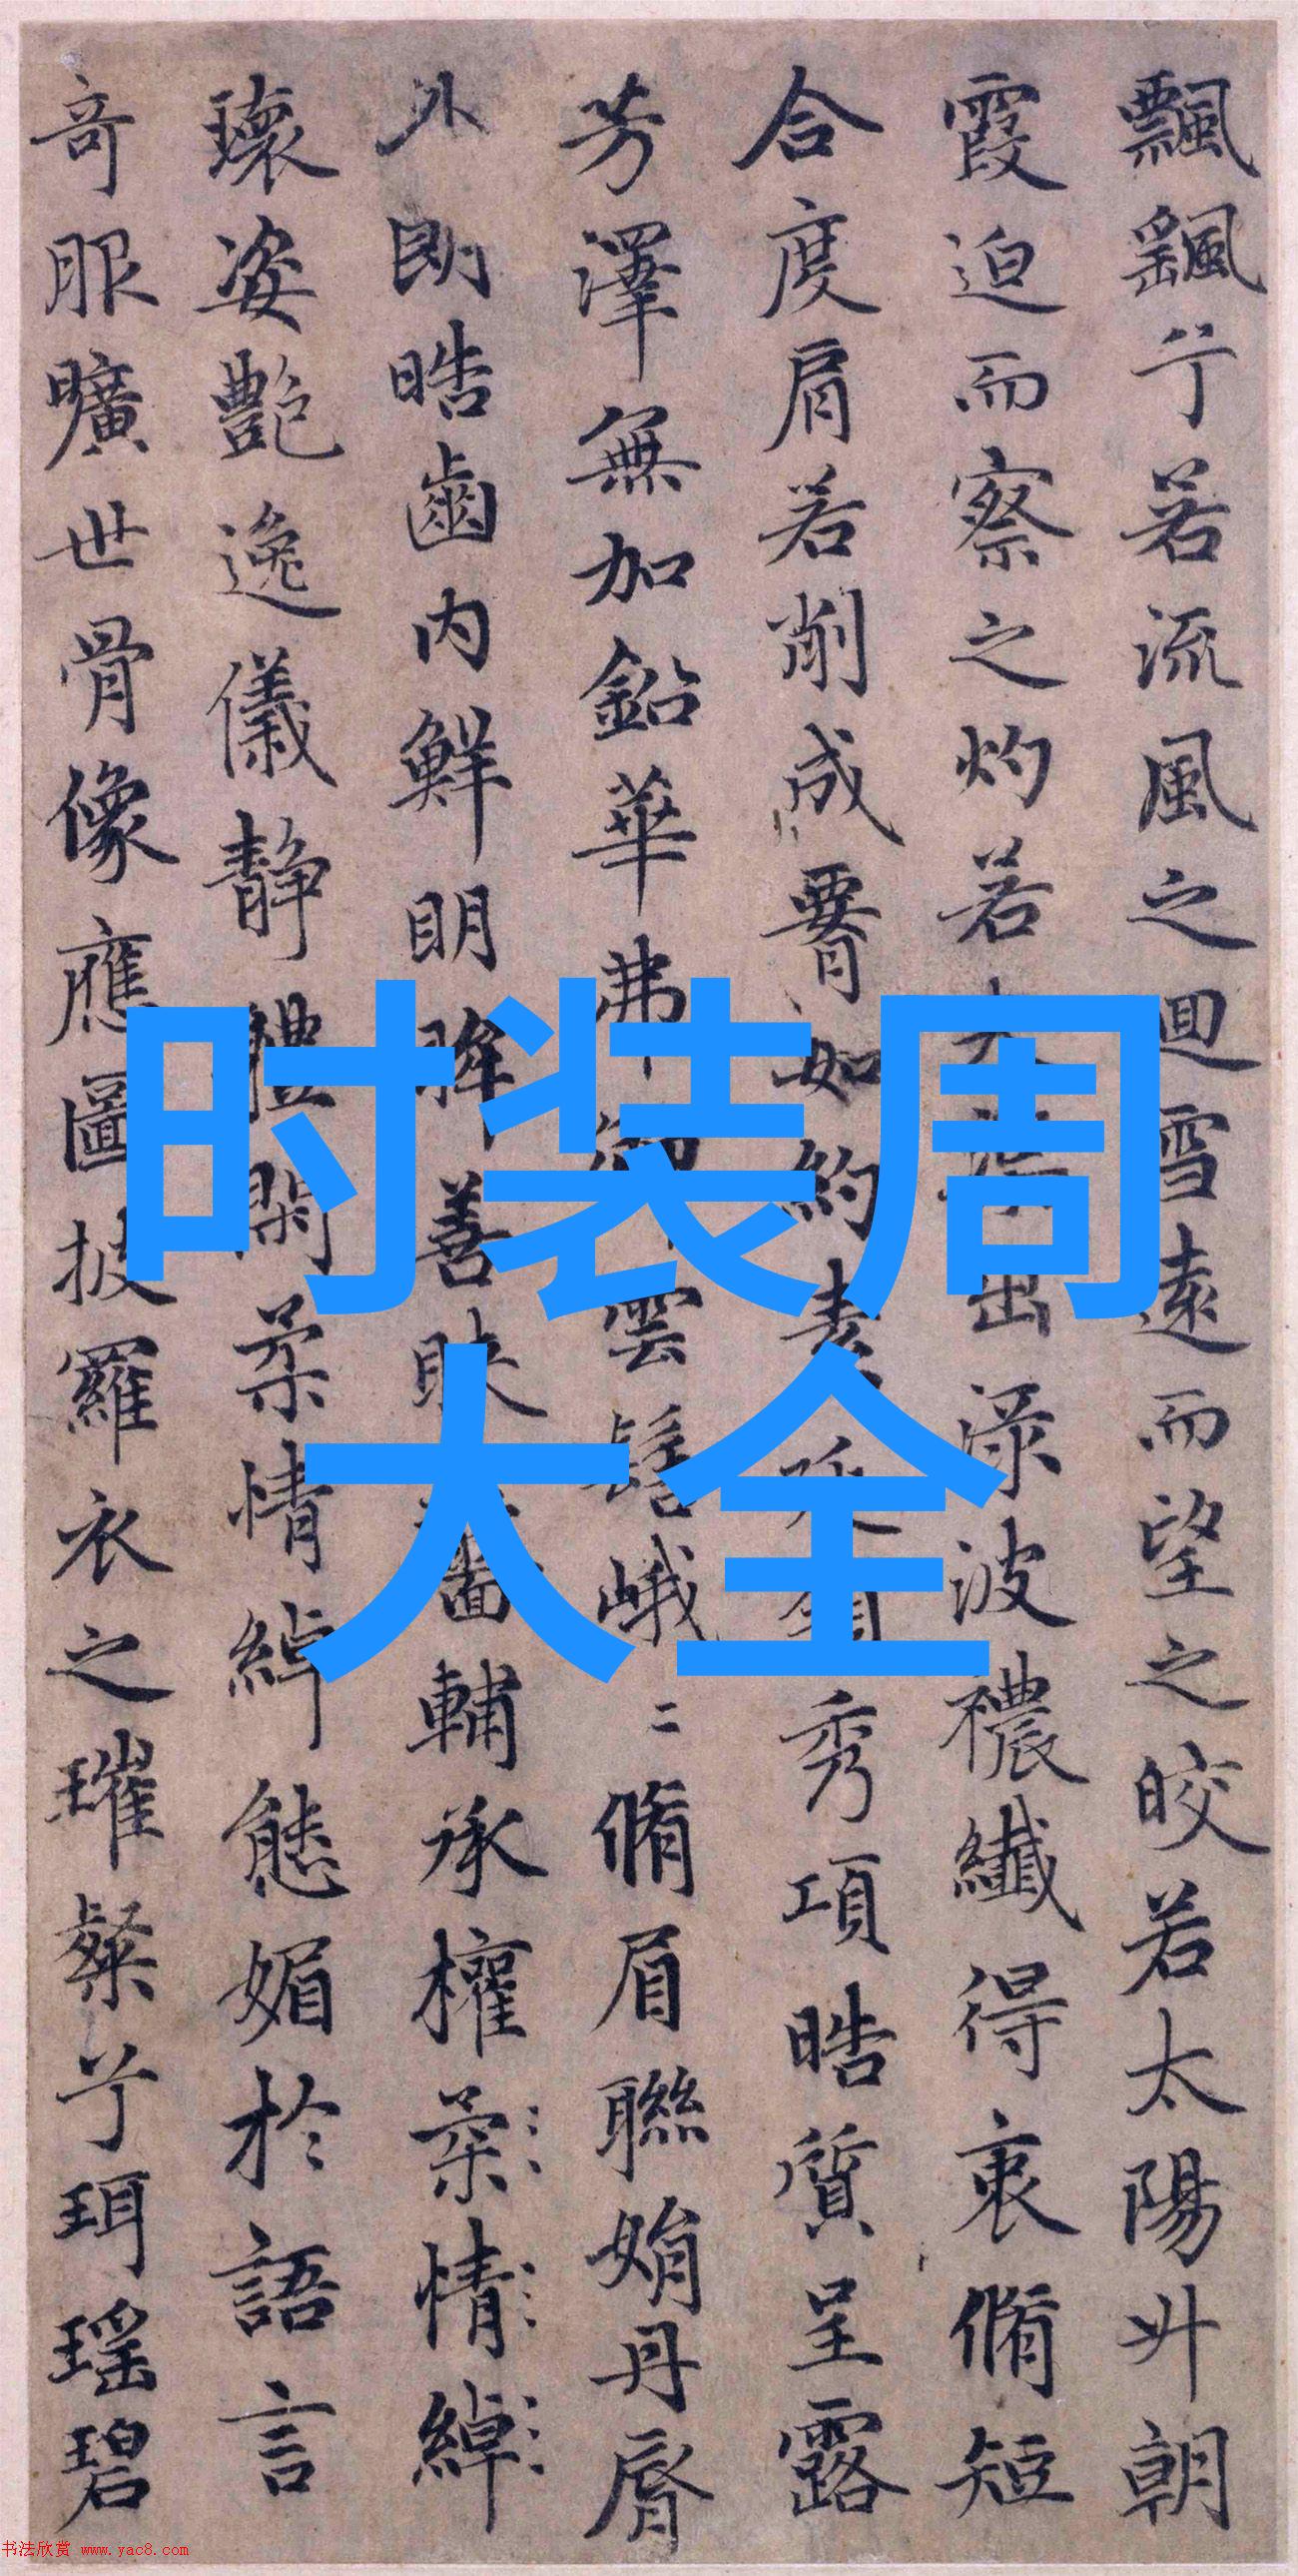 飄飖兮若流風之迴雪遠而望之皎若太陽升朝
霞迫而察之灼若出渌波穠纖得衷脩短
合度肩若削成𦝫如約素秀項皓質呈露
芳澤無加鉛華弗雲髻峨〻脩眉聯娟丹脣
外朗皓齒内鮮明眸善睞輔承權柔情綽
瓌姿艶逸儀静體閑柔情綽態媚於語言
奇服曠世骨像應圖披羅衣之璀粲兮珥瑶碧
时装周
大全
书法欣赏 www.yac8.com